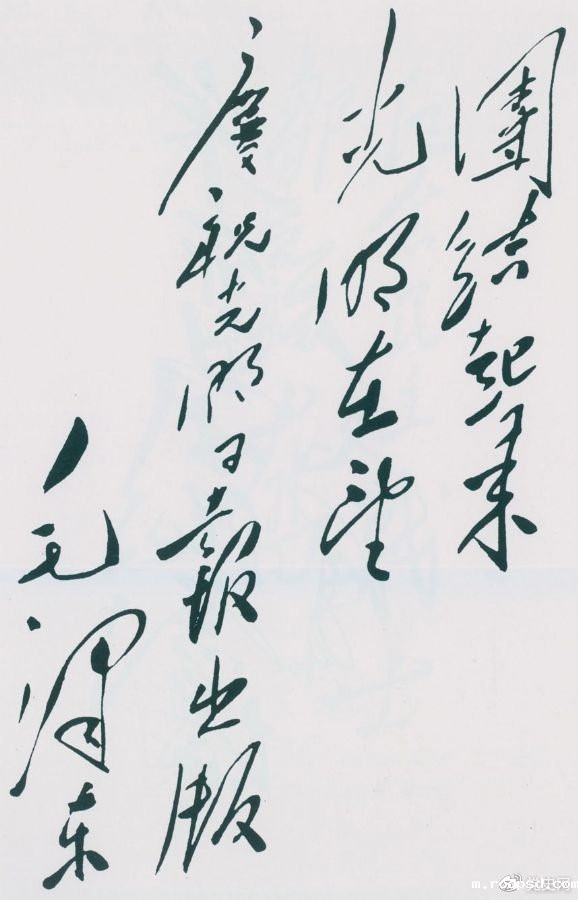 團結起来
光明在望
慶祝光明日報出版
毛澤东
m.roopsd.com